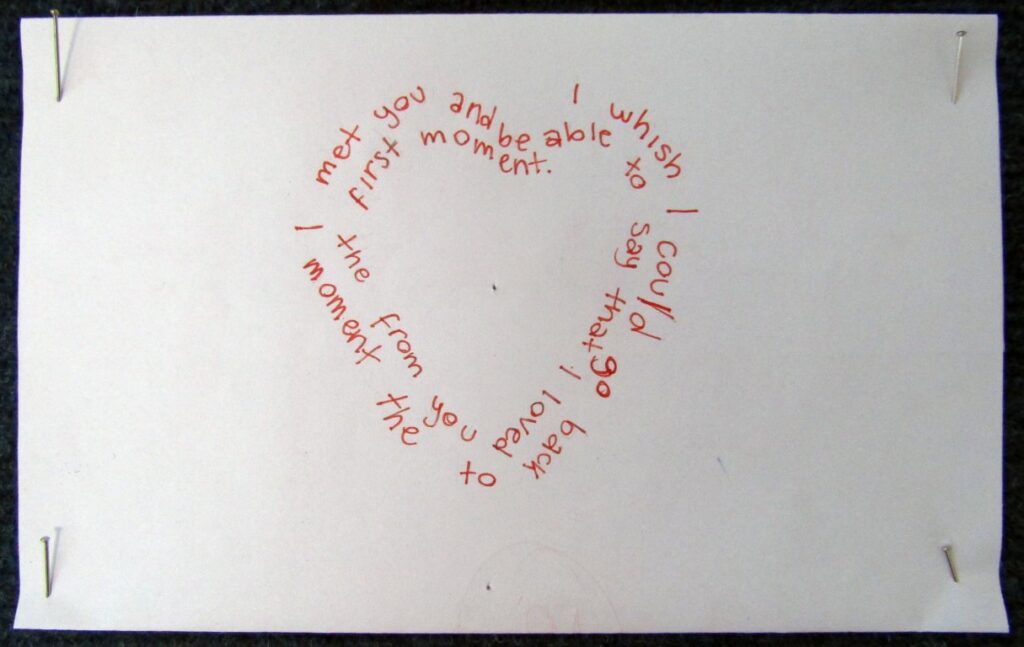 I whish I could go back to the moment I met you and be able to say that I loved you from the first moment.